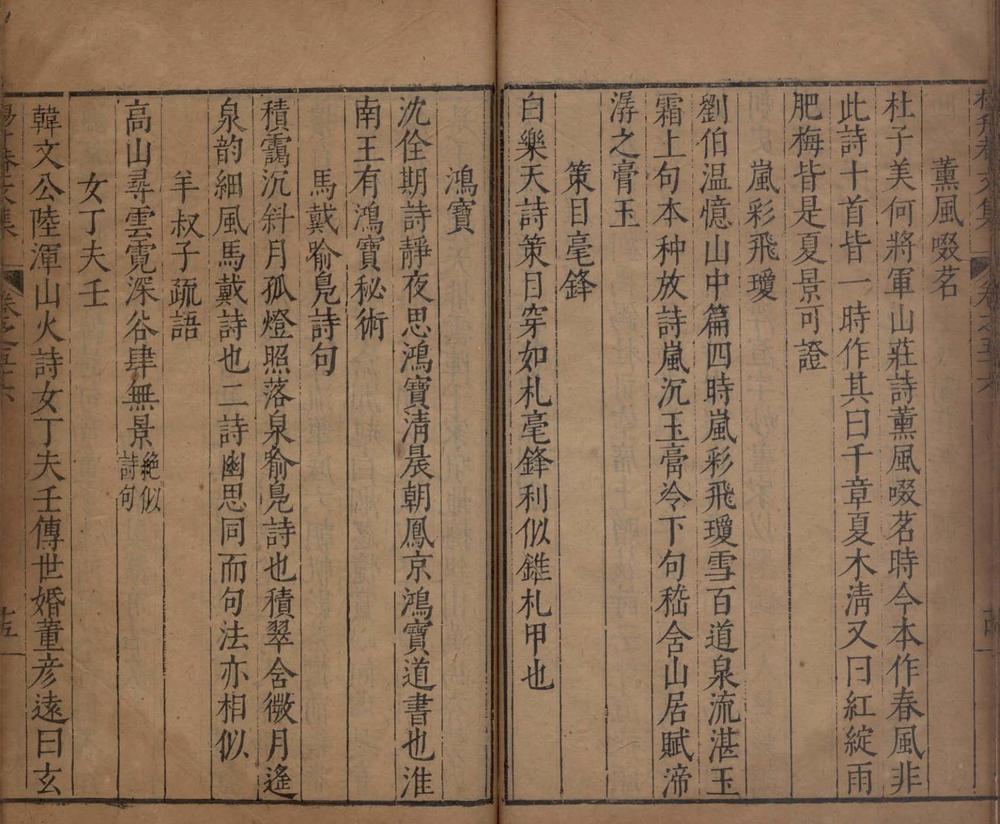 薰風啜茗
杜子美何將軍山莊詩薰風啜茗時今本作春風非
此詩十首皆一時作其曰千章夏木淸又曰紅綻雨
肥梅皆是夏景可證
嵐彩飛瓊
劉伯温憶山中篇四時嵐彩飛瓊雪百道泉流湛玉
霜上句本种放詩嵐沉玉膏冷下句嵇含山居賦滴
潺之膏玉
策目毫鋒
白樂天詩策目穿如札毫鋒利似錐札甲也
鴻寶
沈佺期詩靜夜思鴻寶淸晨朝鳳京鴻寶道書也淮
南王有鴻寶秘術
馬戴喻鳧詩句
積靄沉斜月孤燈照落泉喻鳧詩也積翠含微月遙
泉韵細風馬戴詩也二詩幽思同而句法亦相似
羊叔子疏語
高山尋雲霓深谷肆無景絶似詩句
女丁夫壬
韓文公陸渾山火詩女丁夫壬傳世婚董彥遠曰玄
十五